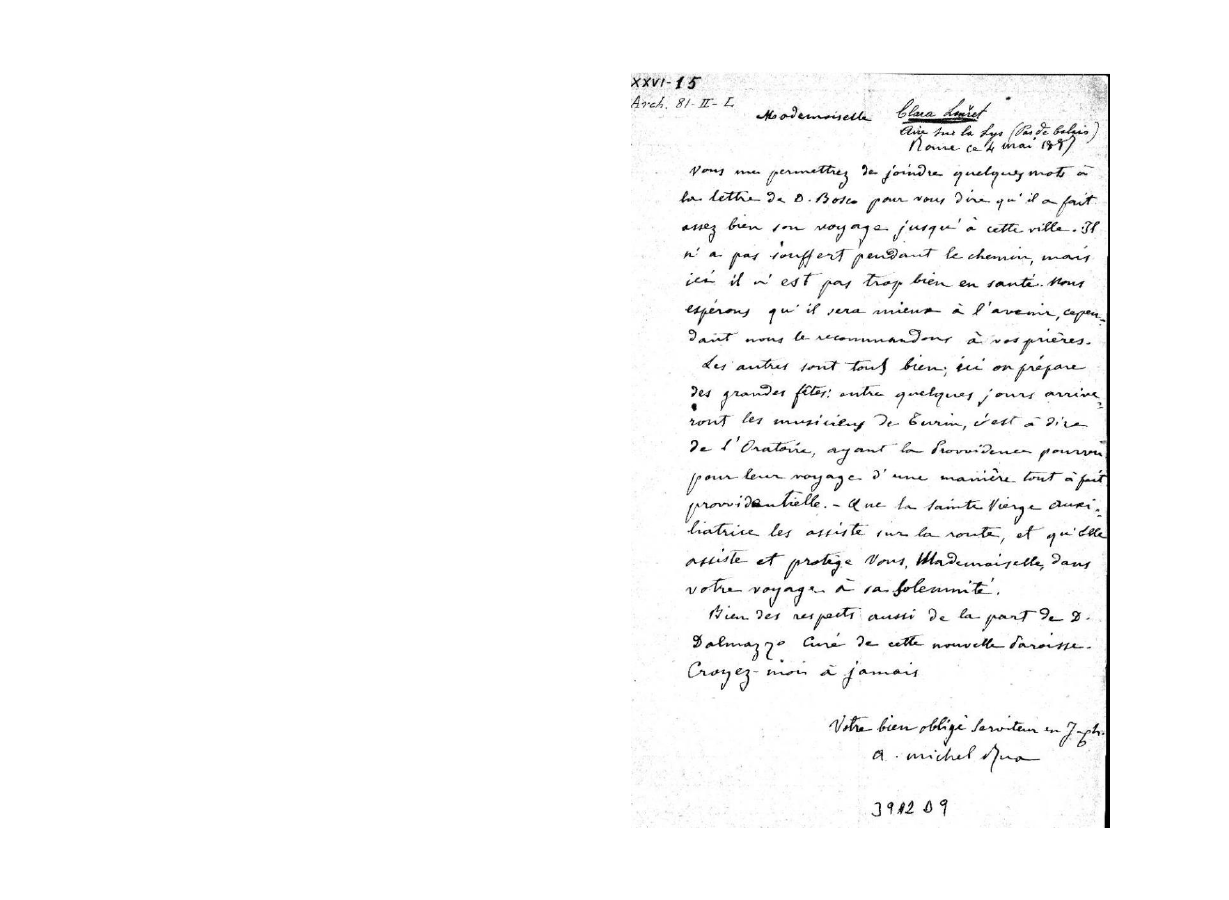 XXVI-15
Arch. 81-II-L
Mademoiselle Clara Louvet
Aire sur la Lys (Pas de Calais)
Rome ce 4 mai 1887
Vous me permettrez de joindre quelques mots à
la lettre de D. Bosco pour vous dire qu'il a fait
assez bien son voyage jusqu'à cette ville. Il
n'a pas souffert pendant le chemin, mais
ici il n'est pas trop bien en santé. Nous
espérons qu'il sera mieux à l'avenir, cepen-
dant nous le recommandons à vos prières.
Les autres sont tous bien; ici on prépare
des grandes fêtes: entre quelques jours arrive-
ront les musiciens de Turin, c'est à dire
de l'Oratoire, ayant la Provvidence pourvu
pour leur voyage d'une manière tout à fait
provvidentielle. - Que la Sainte Vierge auxi-
liatrice les assiste sur la route, et qu'Elle
assiste et protège Vous, Mademoiselle, dans
votre voyage à sa solemnité.
Bien des respects aussi de la part de D.
Dalmazzo Curé de cette nouvelle Paroisse.
Croyez-moi à jamais
Votre bien obligé Serviteur en
a. michel Rua
39A2 D9